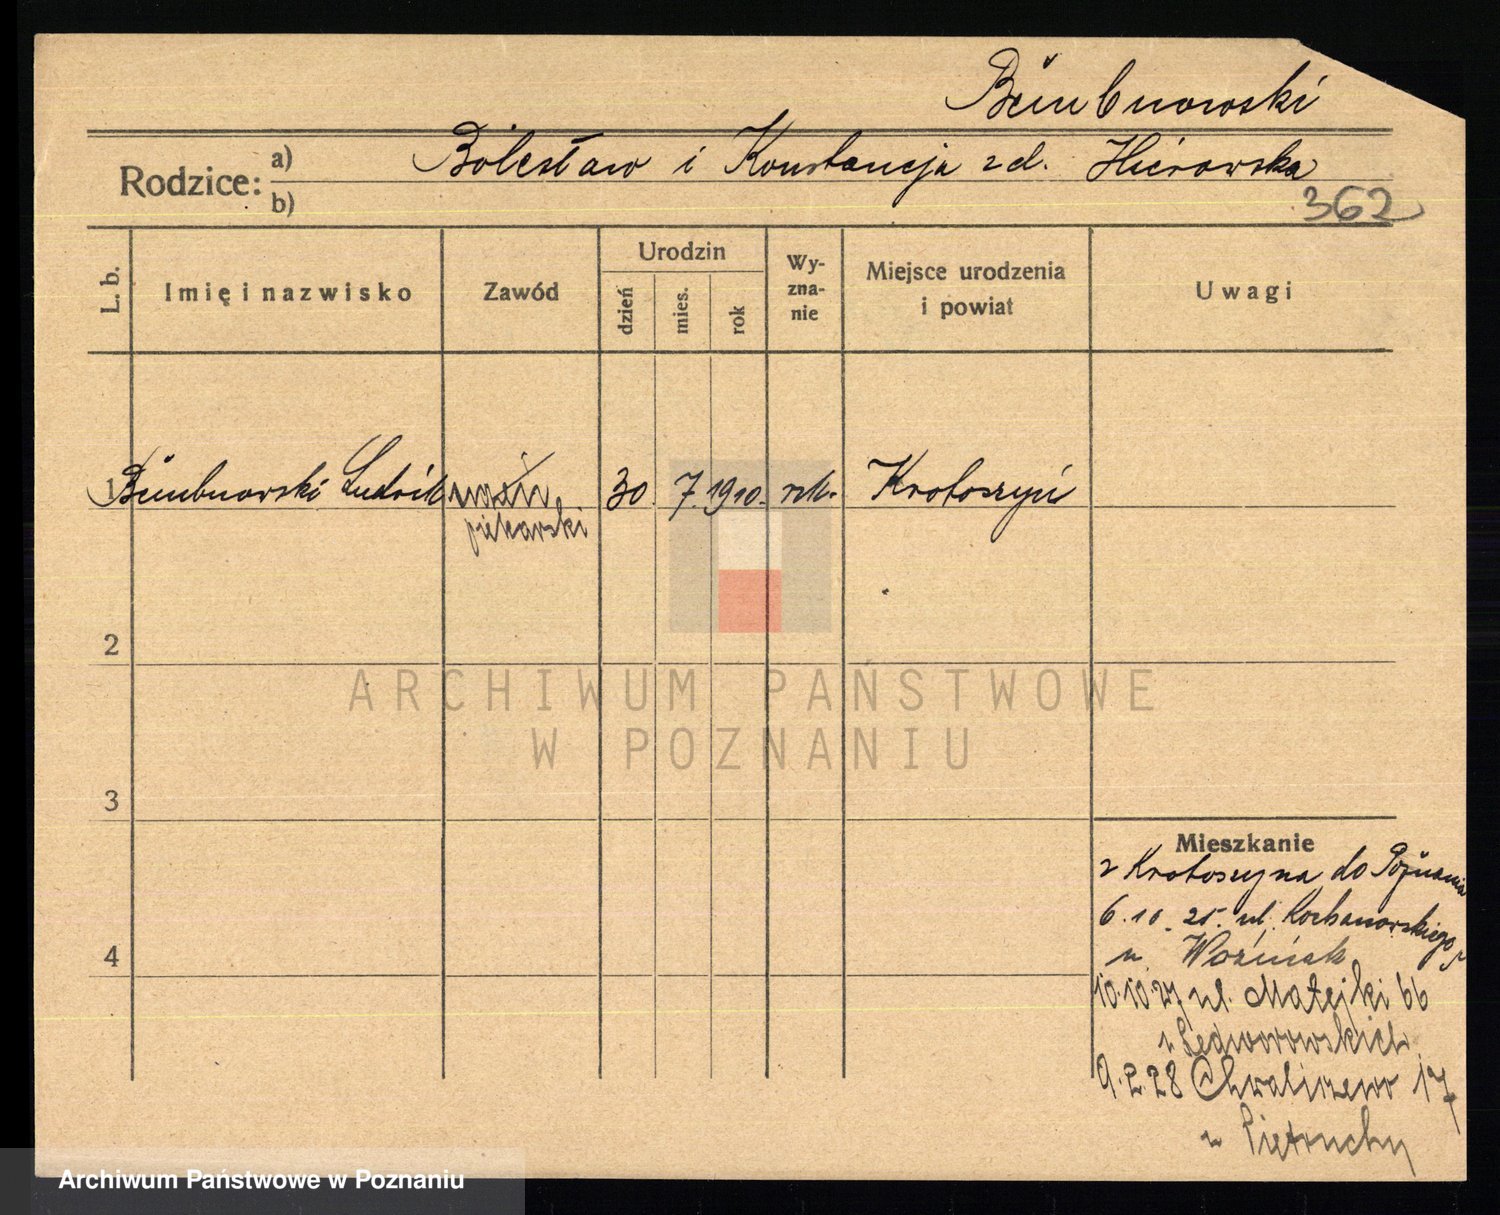 Bembnowski
Rodzice: a) Bolesław i Konstancja zd. Hierowska
b)
362
L. b. Imię i nazwisko Zawód Urodzin dzień mies. rok Wy-zna-nie Miejsce urodzenia i powiat Uwagi
1 Bembnowski Ludwik uczeń 30. 7. 1910. rzk. Krotoszyń
piekarski
2
ARCHIWUM PAŃSTWOWE
W POZNANIU
3
Mieszkanie
z Krotoszyna do Poznania
6.10.25. ul. Kochanowskiego 5
u Woźniak
4
10.10.27 ul. Matejki 66
u Ledworowskich
9.2.28 Chwaliszewo 17
u Pietruchy
Archiwum Państwowe w Poznaniu